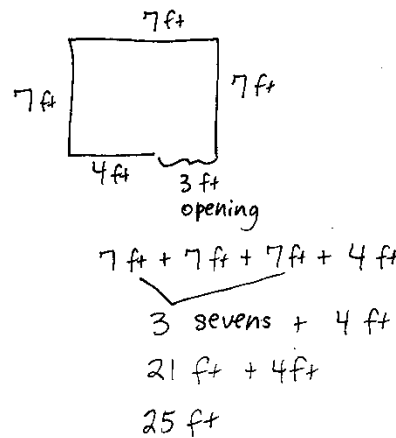 7 ft
7 ft
7 ft
4 ft
3 ft
opening
7 ft + 7 ft + 7 ft + 4 ft
3 sevens + 4 ft
21 ft + 4 ft
25 ft